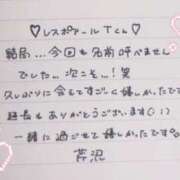 ♡レスポアールTくん♡
結局...今回も名前呼べません
でした...次こそ...!笑
久しぶりに会えてすごく嬉しかったです
延長もありがとうございます(^^)
一緒に過ごせて嬉しかったです。
芹沢